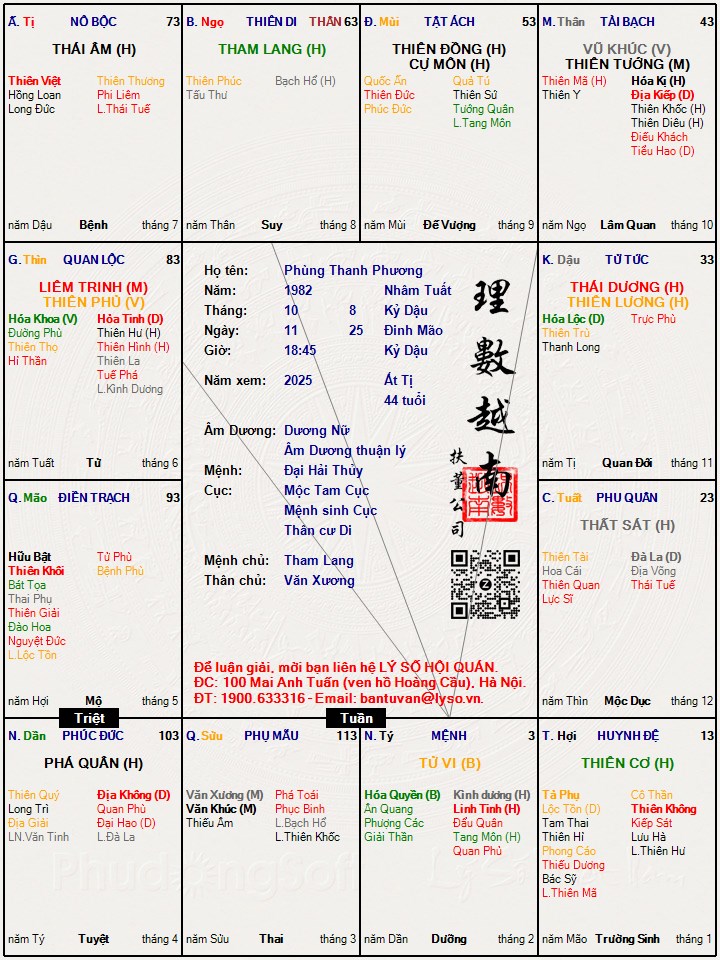 Ấ. Tị NÔ BỘC 73
THÁI ÂM (H)
Thiên Việt Thiên Thương
Hồng Loan Phi Liêm
Long Đức L.Thái Tuế
năm Dậu Bệnh tháng 7
B. Ngọ THIÊN DI THÂN 63
THAM LANG (H)
Thiên Phúc Bạch Hổ (H)
Tấu Thư
năm Thân Suy tháng 8
Đ. Mùi TẬT ÁCH 53
THIÊN ĐỒNG (H)
CỰ MÔN (H)
Quốc Ấn Quả Tú
Thiên Đức Thiên Sứ
Phúc Đức Tướng Quân
L.Tang Môn
năm Mùi Đế Vượng tháng 9
M. Thân TÀI BẠCH 43
VŨ KHÚC (V)
THIÊN TƯỚNG (M)
Thiên Mã (H) Hóa Kị (H)
Thiên Y Địa Kiếp (D)
Thiên Khốc (H)
Thiên Diêu (H)
Điếu Khách
Tiểu Hao (D)
năm Ngọ Lâm Quan tháng 10
G. Thìn QUAN LỘC 83
LIÊM TRINH (M)
THIÊN PHỦ (V)
Hóa Khoa (V) Hỏa Tinh (D)
Đường Phù Thiên Hư (H)
Thiên Thọ Thiên Hình (H)
Hỉ Thần Thiên La
Tuế Phá
L.Kình Dương
năm Tuất Tử tháng 6
Họ tên: Phùng Thanh Phương
Năm: 1982 Nhâm Tuất
Tháng: 10 8 Kỷ Dậu
Ngày: 11 25 Đinh Mão
Giờ: 18:45 Kỷ Dậu
Năm xem: 2025 Ất Tị
44 tuổi
Âm Dương: Dương Nữ
Âm Dương thuận lý
Mệnh: Đại Hải Thủy
Cục: Mộc Tam Cục
Mệnh sinh Cục
Thân cư Di
Mệnh chủ: Tham Lang
Thân chủ: Văn Xương
理數越南
扶董公司
Để luận giải, mời bạn liên hệ LÝ SỐ HỘI QUÁN.
ĐC: 100 Mai Anh Tuấn (ven hồ Hoàng Cầu), Hà Nội.
ĐT: 1900.633316 - Email: bantuvan@lyso.vn.
K. Dậu TỬ TỨC 33
THÁI DƯƠNG (H)
THIÊN LƯƠNG (H)
Hóa Lộc (D) Trực Phù
Thiên Trù
Thanh Long
năm Tị Quan Đới tháng 11
Q. Mão ĐIỀN TRẠCH 93
Hữu Bật Tử Phù
Thiên Khôi Bệnh Phù
Bát Tọa
Thai Phụ
Thiên Giải
Đào Hoa
Nguyệt Đức
L.Lộc Tồn
năm Hợi Mộ tháng 5
C. Tuất PHU QUÂN 23
THẤT SÁT (H)
Thiên Tài Đà La (D)
Hoa Cái Địa Võng
Thiên Quan Thái Tuế
Lực Sĩ
năm Thìn Mộc Dục tháng 12
Triệt
Tuần
N. Dần PHÚC ĐỨC 103
PHÁ QUÂN (H)
Thiên Quý Địa Không (D)
Long Trì Quan Phù
Địa Giải Đại Hao (D)
LN.Văn Tinh L.Đà La
năm Tý Tuyệt tháng 4
Q. Sửu PHỤ MẪU 113
Văn Xương (M) Phá Toái
Văn Khúc (M) Phục Binh
Thiếu Âm L.Bạch Hổ
L.Thiên Khốc
năm Sửu Thai tháng 3
N. Tý MỆNH 3
TỬ VI (B)
Hóa Quyền (B) Kình dương (H)
Ân Quang Linh Tinh (H)
Phượng Các Đẩu Quân
Giải Thần Tang Môn (H)
Quan Phủ
năm Dần Dưỡng tháng 2
T. Hợi HUYNH ĐỆ 13
THIÊN CƠ (H)
Tả Phụ Cô Thần
Lộc Tồn (D) Thiên Không
Tam Thai Kiếp Sát
Thiên Hỉ Lưu Hà
Phong Cáo L.Thiên Hư
Thiếu Dương
Bác Sỹ
L.Thiên Mã
năm Mão Trường Sinh tháng 1